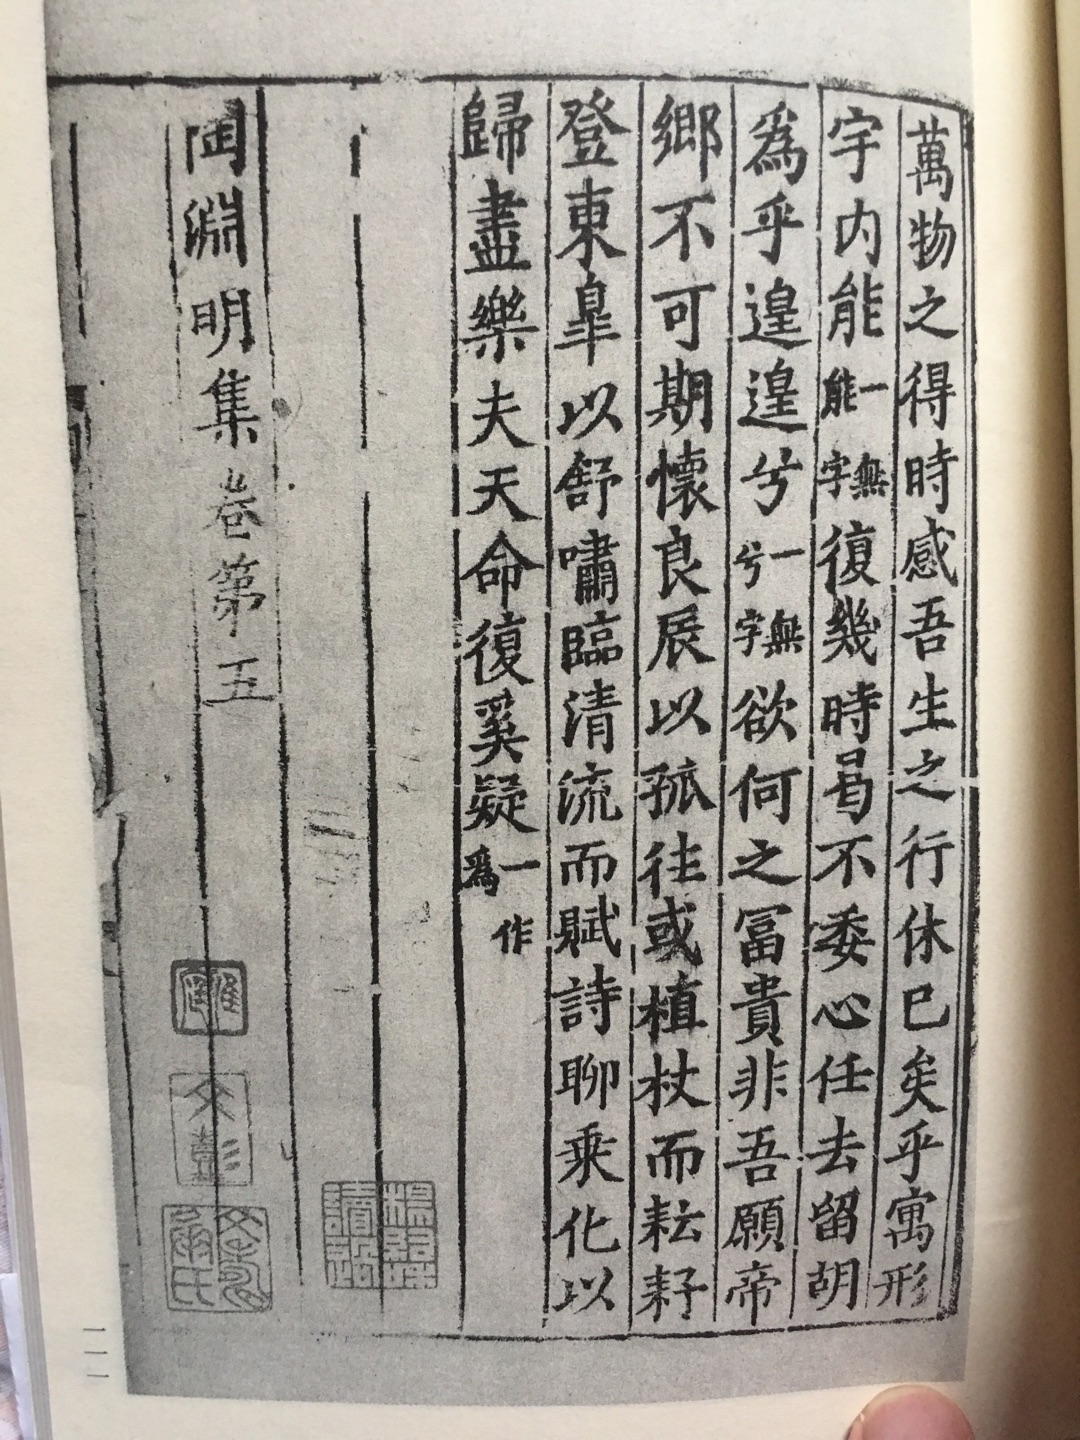 萬物之得時感吾生之行休已矣乎寓形
宇内能一無能字復幾時曷不委心任去留胡
爲乎遑遑兮一無兮字欲何之冨貴非吾願帝
鄉不可期懷良辰以孤往或植杖而耘耔
登東臯以舒嘯臨清流而賦詩聊乘化以
歸盡樂夫天命復奚疑一作爲
陶淵明集卷第五
文彭
二一一